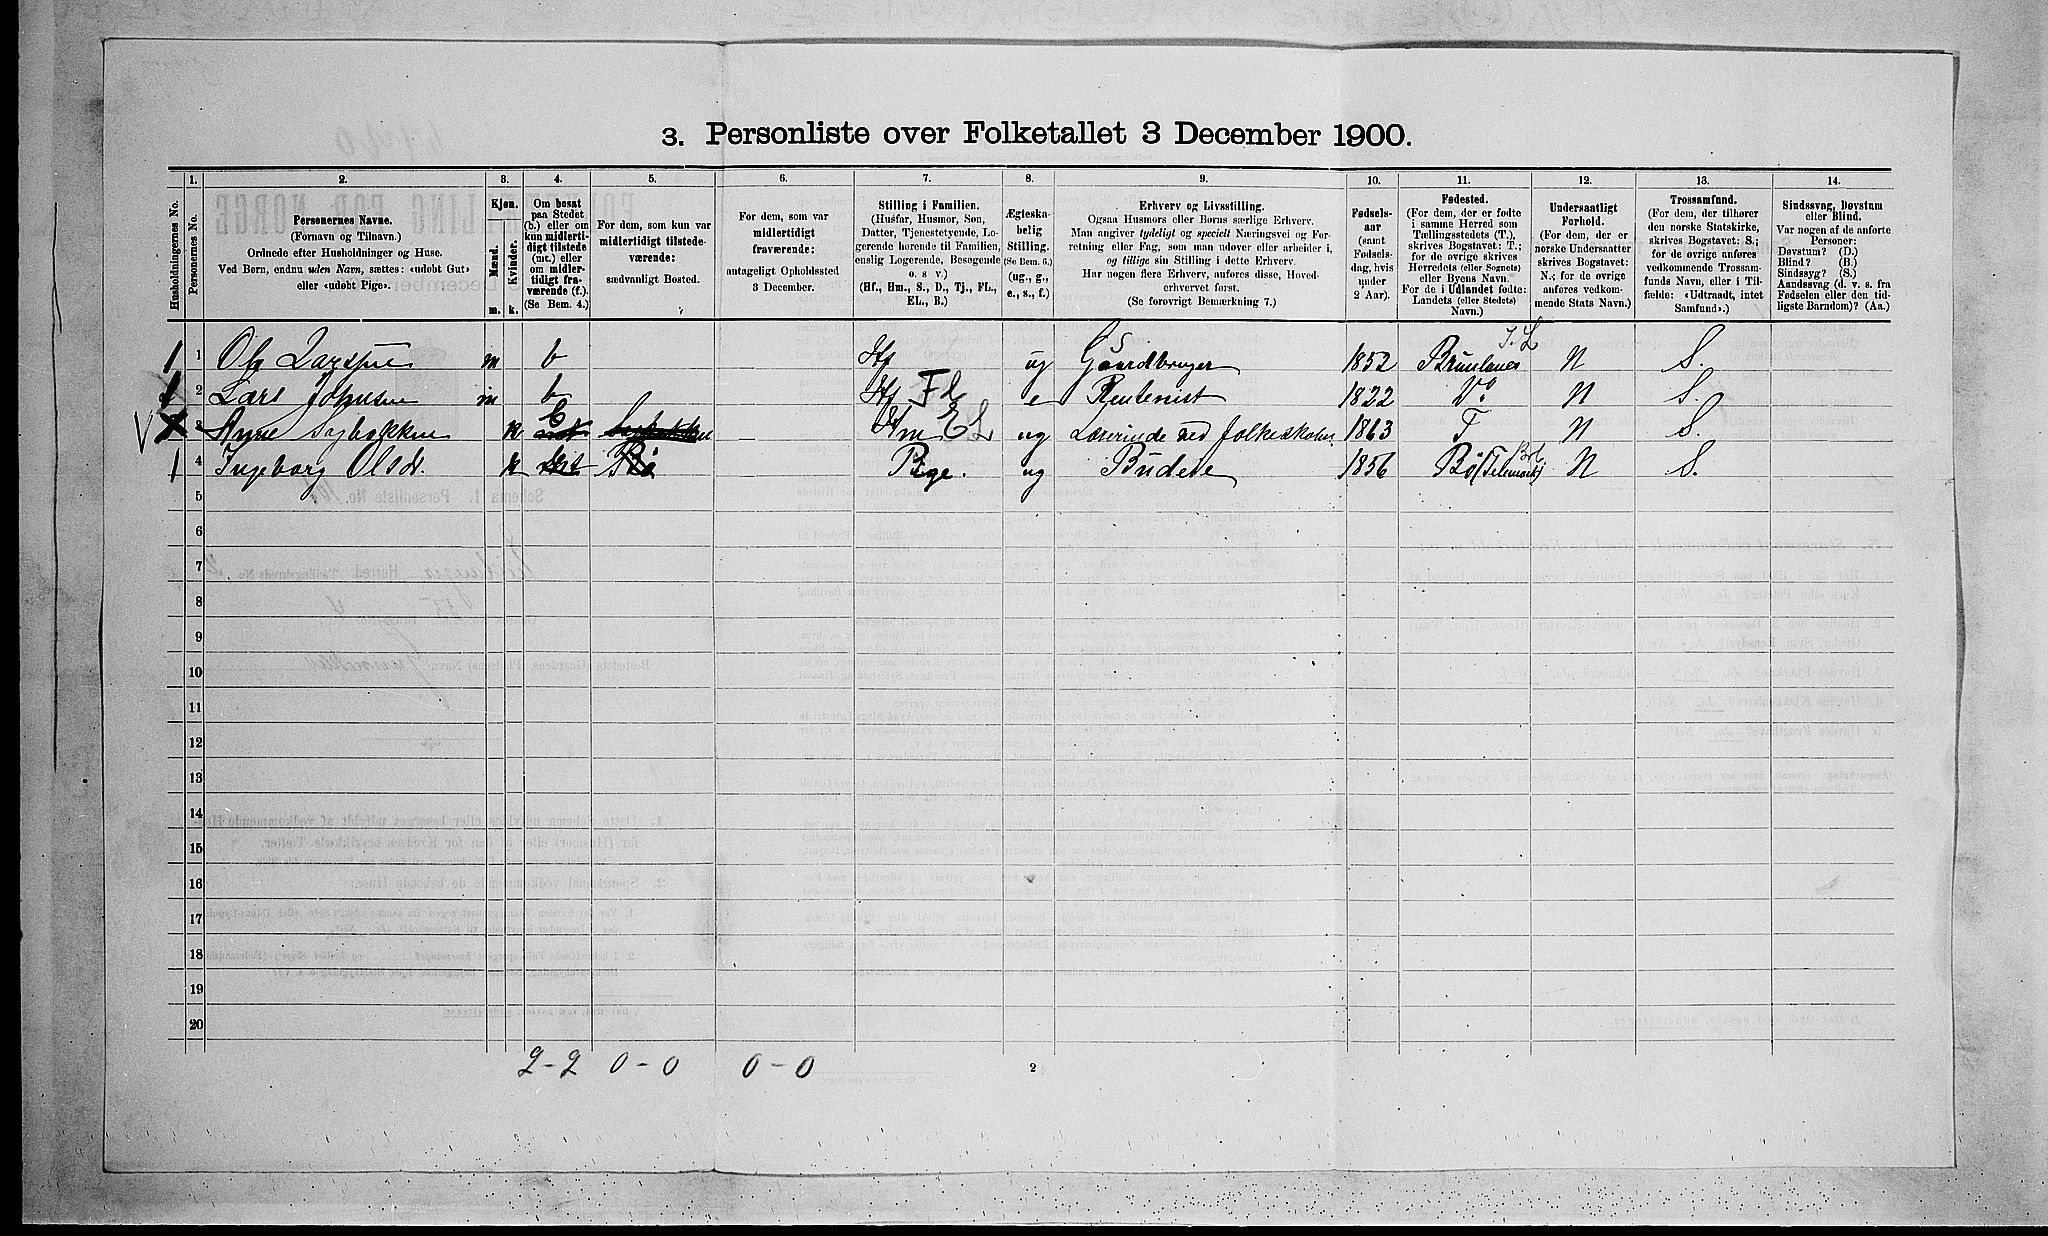 3. Personliste over Folketallet 3 December 1900.
1. 2. 3. 4. 5. 6. 7. 8. 9. 10. 11. 12. 13. 14.
Husholdningernes No.
Personernes No.
Personernes Navne.
(Fornavn og Tilnavn.)
Ordnede efter Husholdninger og Huse.
Ved Børn, endnu uden Navn, sættes: «udøbt Gut»
eller «udøbt Pige».
Kjøn.
Mænd.
Kvinder.
m. k.
Om bosat
paa Stedet
(b.) eller om
kun midlerti-
digt tilstede
(mt.) eller
om midler-
tidigt fra-
værende (f.).
(Se Bem. 4.)
For dem, som kun var
midlertidigt tilstede-
værende:
sædvanligt Bosted.
For dem, som var
midlertidigt
fraværende:
antageligt Opholdssted
3 December.
Stilling i Familien.
(Husfar, Husmor, Søn,
Datter, Tjenestetyende, Lo-
gerende hørende til Familien,
enslig Logerende, Besøgende
o. s v.)
(Hf., Hm., S., D., Tj., FL.,
EL., B.)
Ægteska-
belig
Stilling.
(Se Bem. 6.)
(ug., g.,
e., s., f.)
Erhverv og Livsstilling.
Ogsaa Husmors eller Børns særlige Erhverv.
Man angiver tydeligt og specielt Næringsvei og For-
retning eller Fag, som man udøver eller arbeider i,
og tillige sin Stilling i dette Erhverv.
Har nogen flere Erhverv, anføres disse, Hoved-
erhvervet først.
(Se forøvrigt Bemærkning 7.)
Fødsels-
aar
(samt
Fødsels-
dag, hvis
under
2 Aar).
Fødested.
(For dem, der er fødte
i samme Herred som
Tællingsstedets (T.),
skrives Bogstavet: T.;
for de øvrige skrives
Herredets (eller Sognets)
eller Byens Navn.
For de i Udlandet fødte:
Landets (eller Stedets)
Navn.)
Undersaatligt
Forhold.
(For dem, der er
norske Undersaatter
skrives Bogstavet:
N.; for de øvrige
anføres vedkom-
mende Stats Navn.)
Trossamfund.
(For dem, der tilhører
den norske Statskirke,
skrives Bogstavet: S.;
for de øvrige anføres
vedkommende Trossam-
funds Navn, eller i Til-
fælde: «Udtraadt, intet
Samfund».)
Sindssvag, Døvstum
eller Blind.
Var nogen af de anførte
Personer:
Døvstum? (D.)
Blind? (B.)
Sindssyg? (S.)
Aandssvag (d. v. s. fra
Fødselen eller den tid-
ligste Barndom)? (Aa.)
1 1 Ole Larssen m b Hf ug Gaardbruger 1852 Brunlanes J.L N S.
2 Lars Johnsen m b Hf FL e Rentenist 1822 Do N S.
V 3 Anne Sagbakken k b mt Sagbakken Hm EL ug Lærerinde ved folkeskolen 1863 T N S.
1 4 Ingeborg Olsdr. k mt Bø Pige. ug Budeie 1856 Bø (Telemark) Brt N S.
5
6
7
8
9
10
11
12
13
14
15
16
17
18
19
20
2-2 0-0 0-0
2